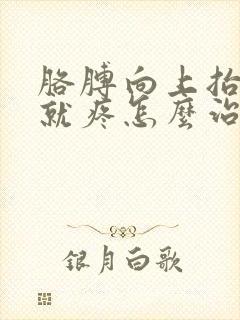 胳膊向上抬
就疼怎麼治
银月白歌